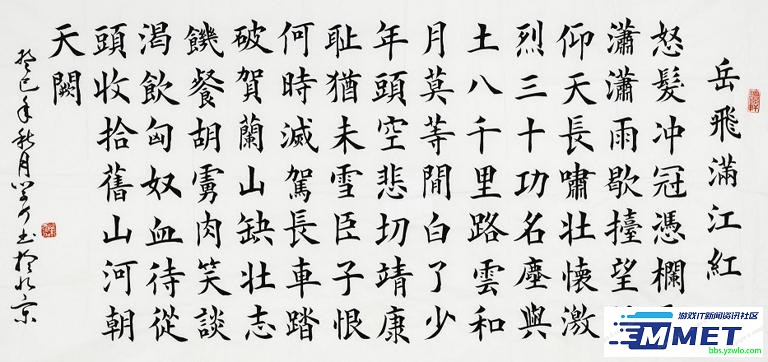 岳飛滿江紅
怒髮冲冠憑欄
瀟瀟雨歇擡望
仰天長嘯壯懷激
烈三十功名塵與
土八千里路雲和
月莫等間白了少
年頭空悲切靖康
耻猶未雪臣子恨
何時滅駕長車踏
破賀蘭山缺壯志
饑餐胡虜肉笑談
渴飲匈奴血待從
頭收拾舊山河朝
天闕
癸巳年秋月 書於北京
游戏IT新闻资讯社区
MMET
bbs.yzwlo.com